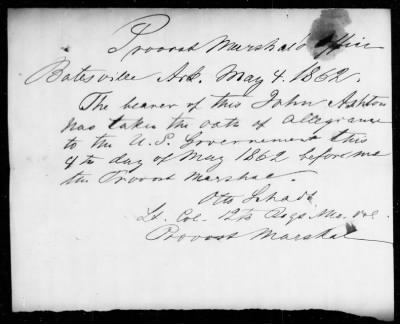 Provost Marshal's Office
Batesville Ark. May 4. 1862.
The bearer of this John Ashton
has taken the oath of Allegiance
to the U.S. Government this
4th day of May 1862 before me
the Provost Marshal.
Otto Schadt
Lt. Col. 12th Regt Mo. Vol.
Provost Marshal